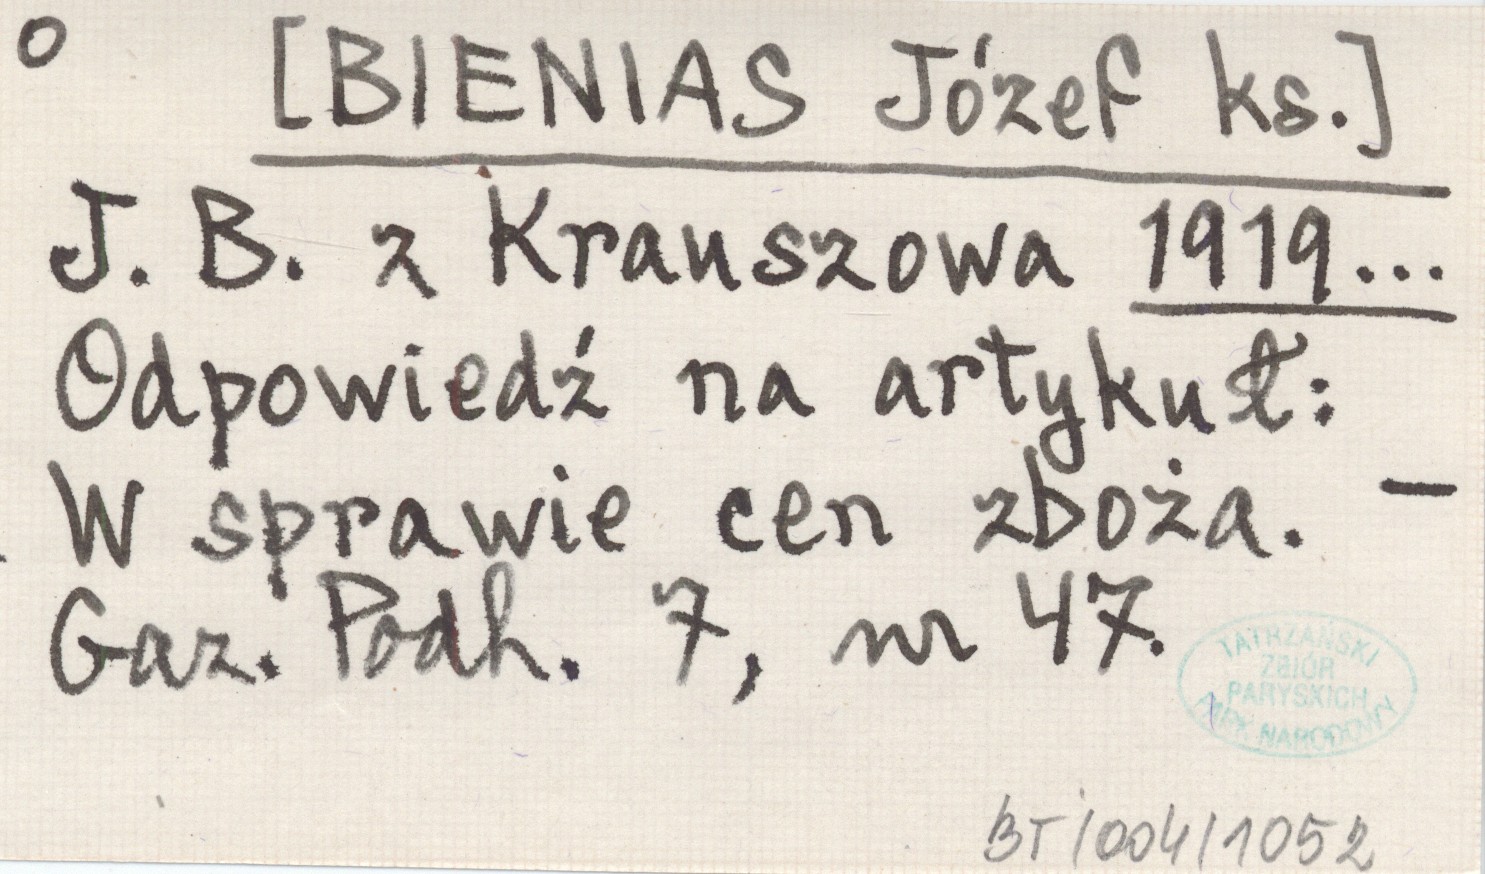 o [BIENIAS Józef ks.]
J. B. z Krauszowa 1919...
Odpowiedź na artykuł:
W sprawie cen zboża. —
Gaz. Podh. 7, nr 47.
TATRZAŃSKI
ZBIÓR
PARYSKICH
PARK NARODOWY
BT/004/1052